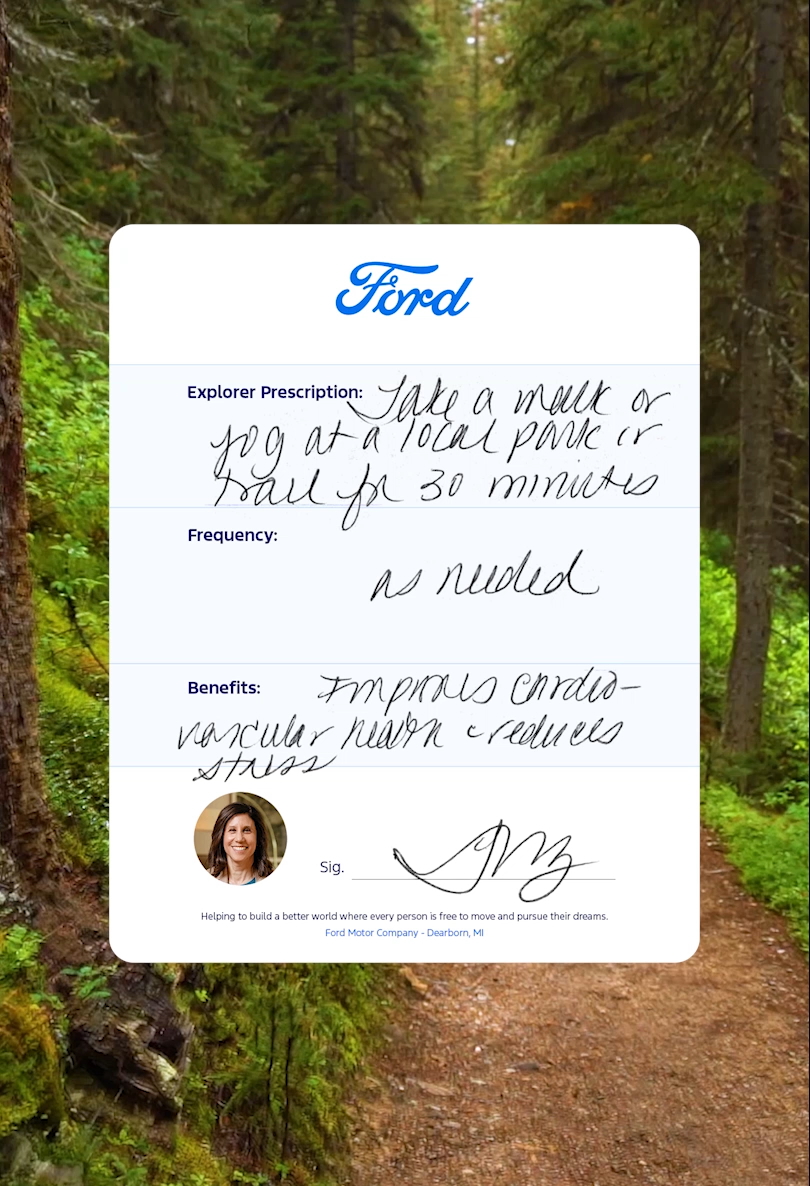 Ford
Explorer Prescription: Take a walk or
jog at a local park or
trail for 30 minutes
Frequency:
as needed
Benefits: Improves cardio-
vascular health & reduces
stress
Sig.
Helping to build a better world where every person is free to move and pursue their dreams.
Ford Motor Company - Dearborn, MI